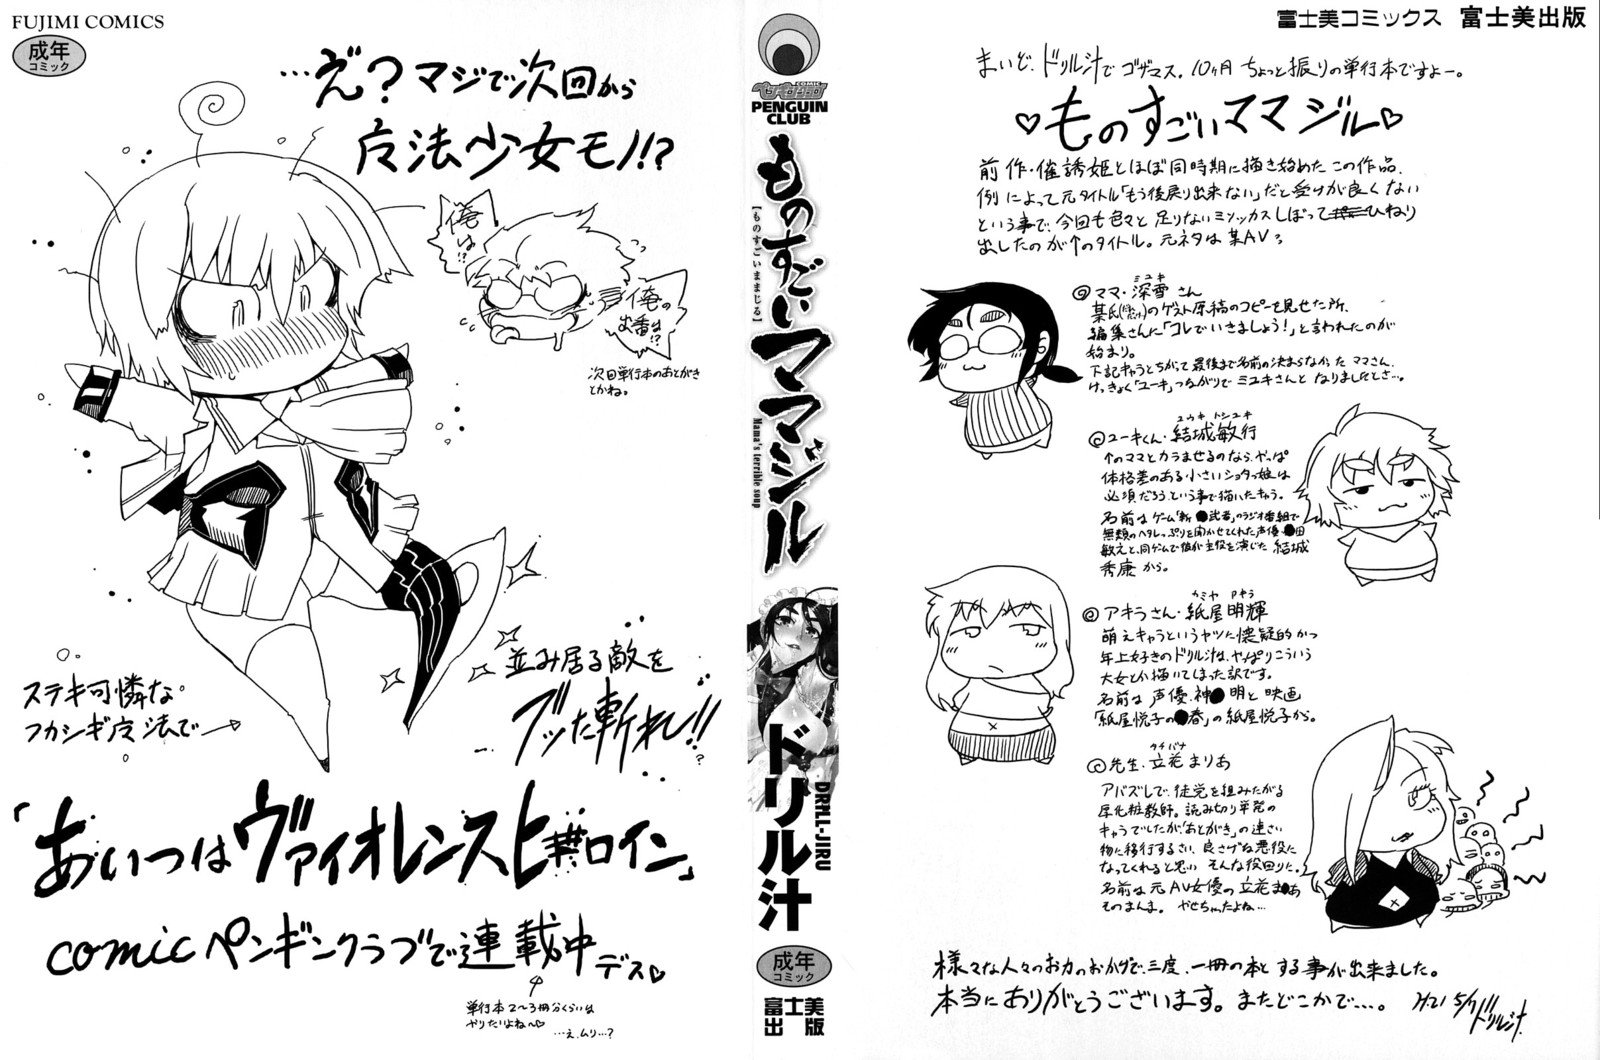 FUJIMI COMICS
成年
コミック
…え？マジで次回から
魔法少女モノ!?
俺は!?
俺の出番は!?
次回単行本のあとがき
とかね。
ステキ可憐な
フカシギ魔法で→
並み居る敵を
ブッた斬れし!!
?
「あいつはヴァイオレンスヒロイン」
comicペンギンクラブで連載中デス♡
単行本2〜3冊分くらいは
やりたいよね〜♡
…え、ムリ…?
COMIC
ペンギンクラブ
PENGUIN
CLUB
ものすごいママジル
【ものすごいままじる】
Mama's terrible soup
ドリル汁
DRILL-JIRU
成年
コミック
富士美
出版
富士美コミックス 富士美出版
まいど、ドリル汁でゴザマス。10ヶ月ちょっと振りの単行本ですよー。
♡ものすごいママジル♡
前作・催誘姫とほぼ同時期に描き始めたこの作品、
例によって元タイトル「もう後戻り出来ない」だと受けが良くない
という事で、今回も色々と足りないミソッカスしぼってひねり
出したのが↑のタイトル。元ネタは某AV?
ミユキ
ママ・深雪さん
某氏のゲスト原稿のコピーを見せた所、
編集さんに「コレでいきましょう!」と言われたのが
始まり。
下記キャラとちがって最後まで名前の決まらなかったママさん、
けっきょく「ユーキ」つながりでミユキさんとなりましたとさ…。
ユウキ トシユキ
ユーキくん・結城敏行
↑のママとカラませるのなら、やっぱ
体格差のある小さいショタっ娘は
必須だろうという事で描いたキャラ。
名前はゲーム「新●武者」のラジオ番組で
無類のヘタレっぷりを聞かせてくれた声優・●田
敏えと、同ゲームで彼が主役を演じた結城
秀康から。
カミヤ アキラ
アキラさん・紙屋明輝
萌えキャラというヤツに懐疑的かつ
年上好きのドリル汁は、やっぱりこういう
大女とか描いてしまった訳です。
名前は声優、神●明と映画
「紙屋悦子の●春」の紙屋悦子から。
タチバナ
先生・立花まりあ
アバズレで、徒党を組みたがる
厚化粧教師。読み切り単発の
キャラでしたが「あとがき」の連さい
物に移行するさい、良さげな悪役に
なってくれると思いそんな役回りに。
名前は元AV女優の立花ま●あ
そのまんま。やせちゃったよね…
様々な人々のお力のおかげで、三度、一冊の本とする事が出来ました。
本当にありがとうございます。またどこかで…。 H21 5/7 ドリル汁